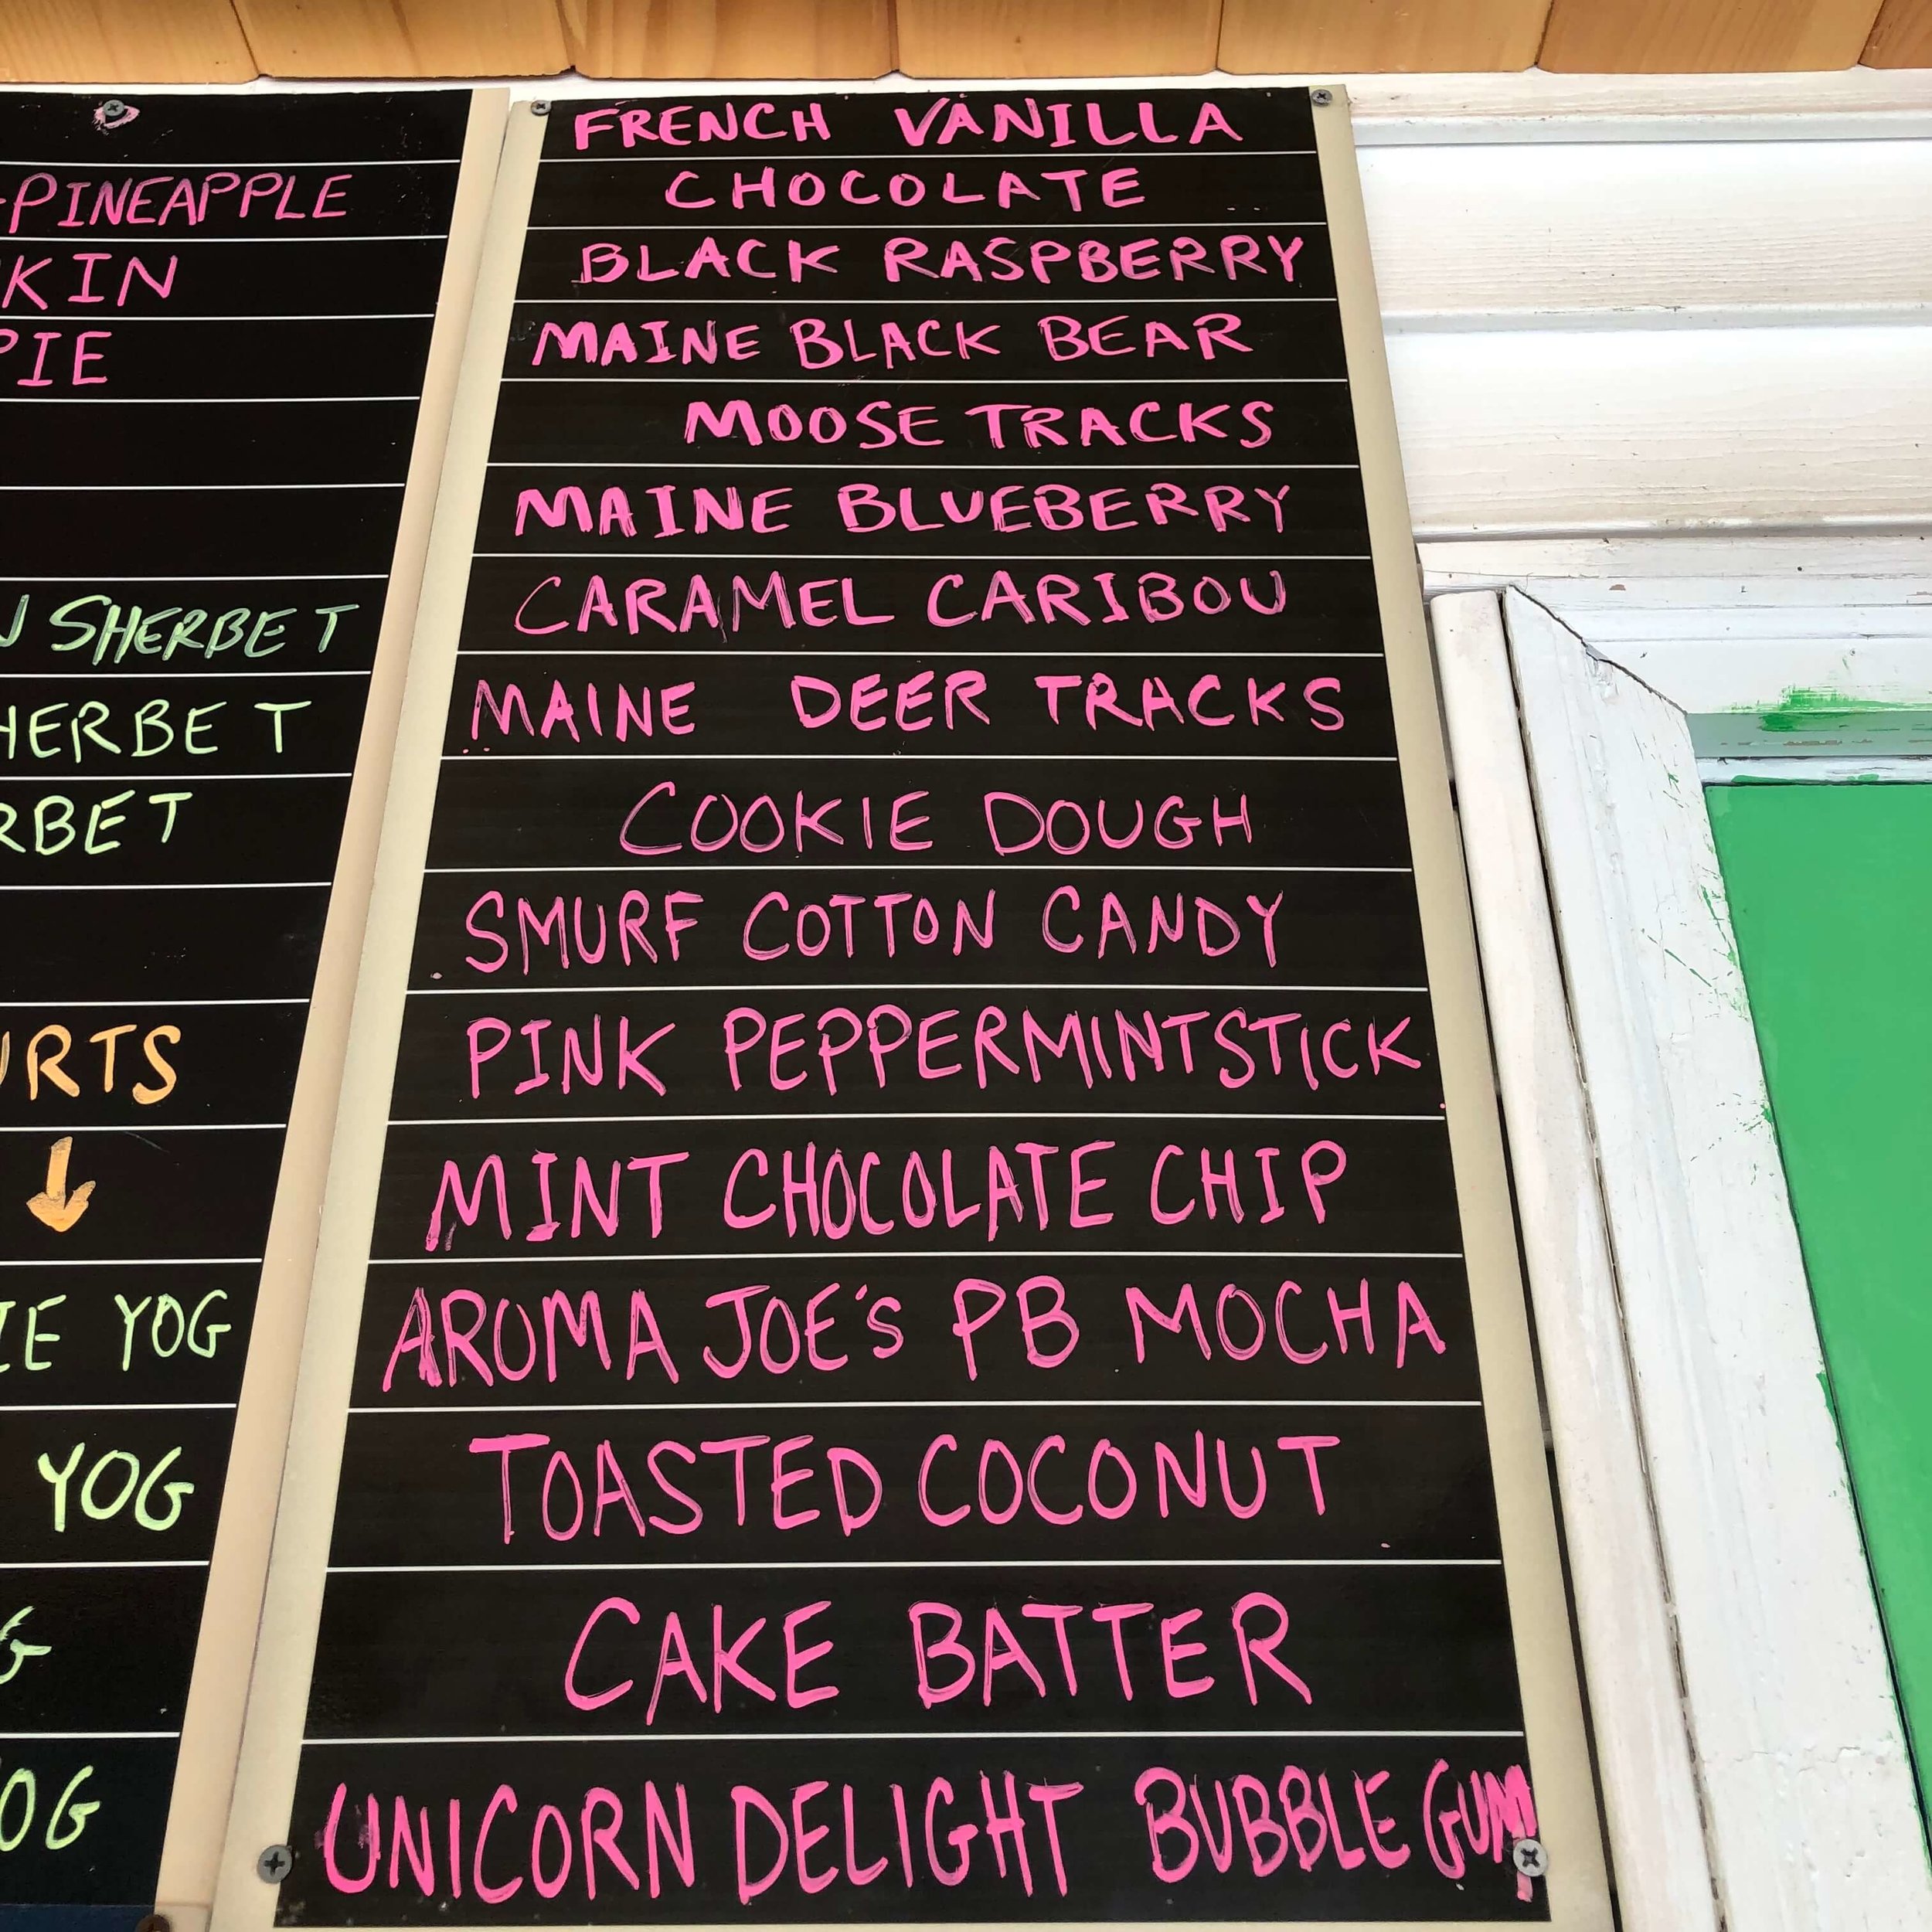 -PINEAPPLE
PIE
SHERBET
YOG
YOG
FRENCH VANILLA
CHOCOLATE
BLACK RASPBERRY
MAINE BLACK BEAR
MOOSE TRACKS
MAINE BLUEBERRY
CARAMEL CARIBOU
MAINE DEER TRACKS
COOKIE DOUGH
SMURF COTTON CANDY
PINK PEPPERMINTSTICK
MINT CHOCOLATE CHIP
AROMA JOE'S PB MOCHA
TOASTED COCONUT
CAKE BATTER
UNICORN DELIGHT BUBBLE GUM